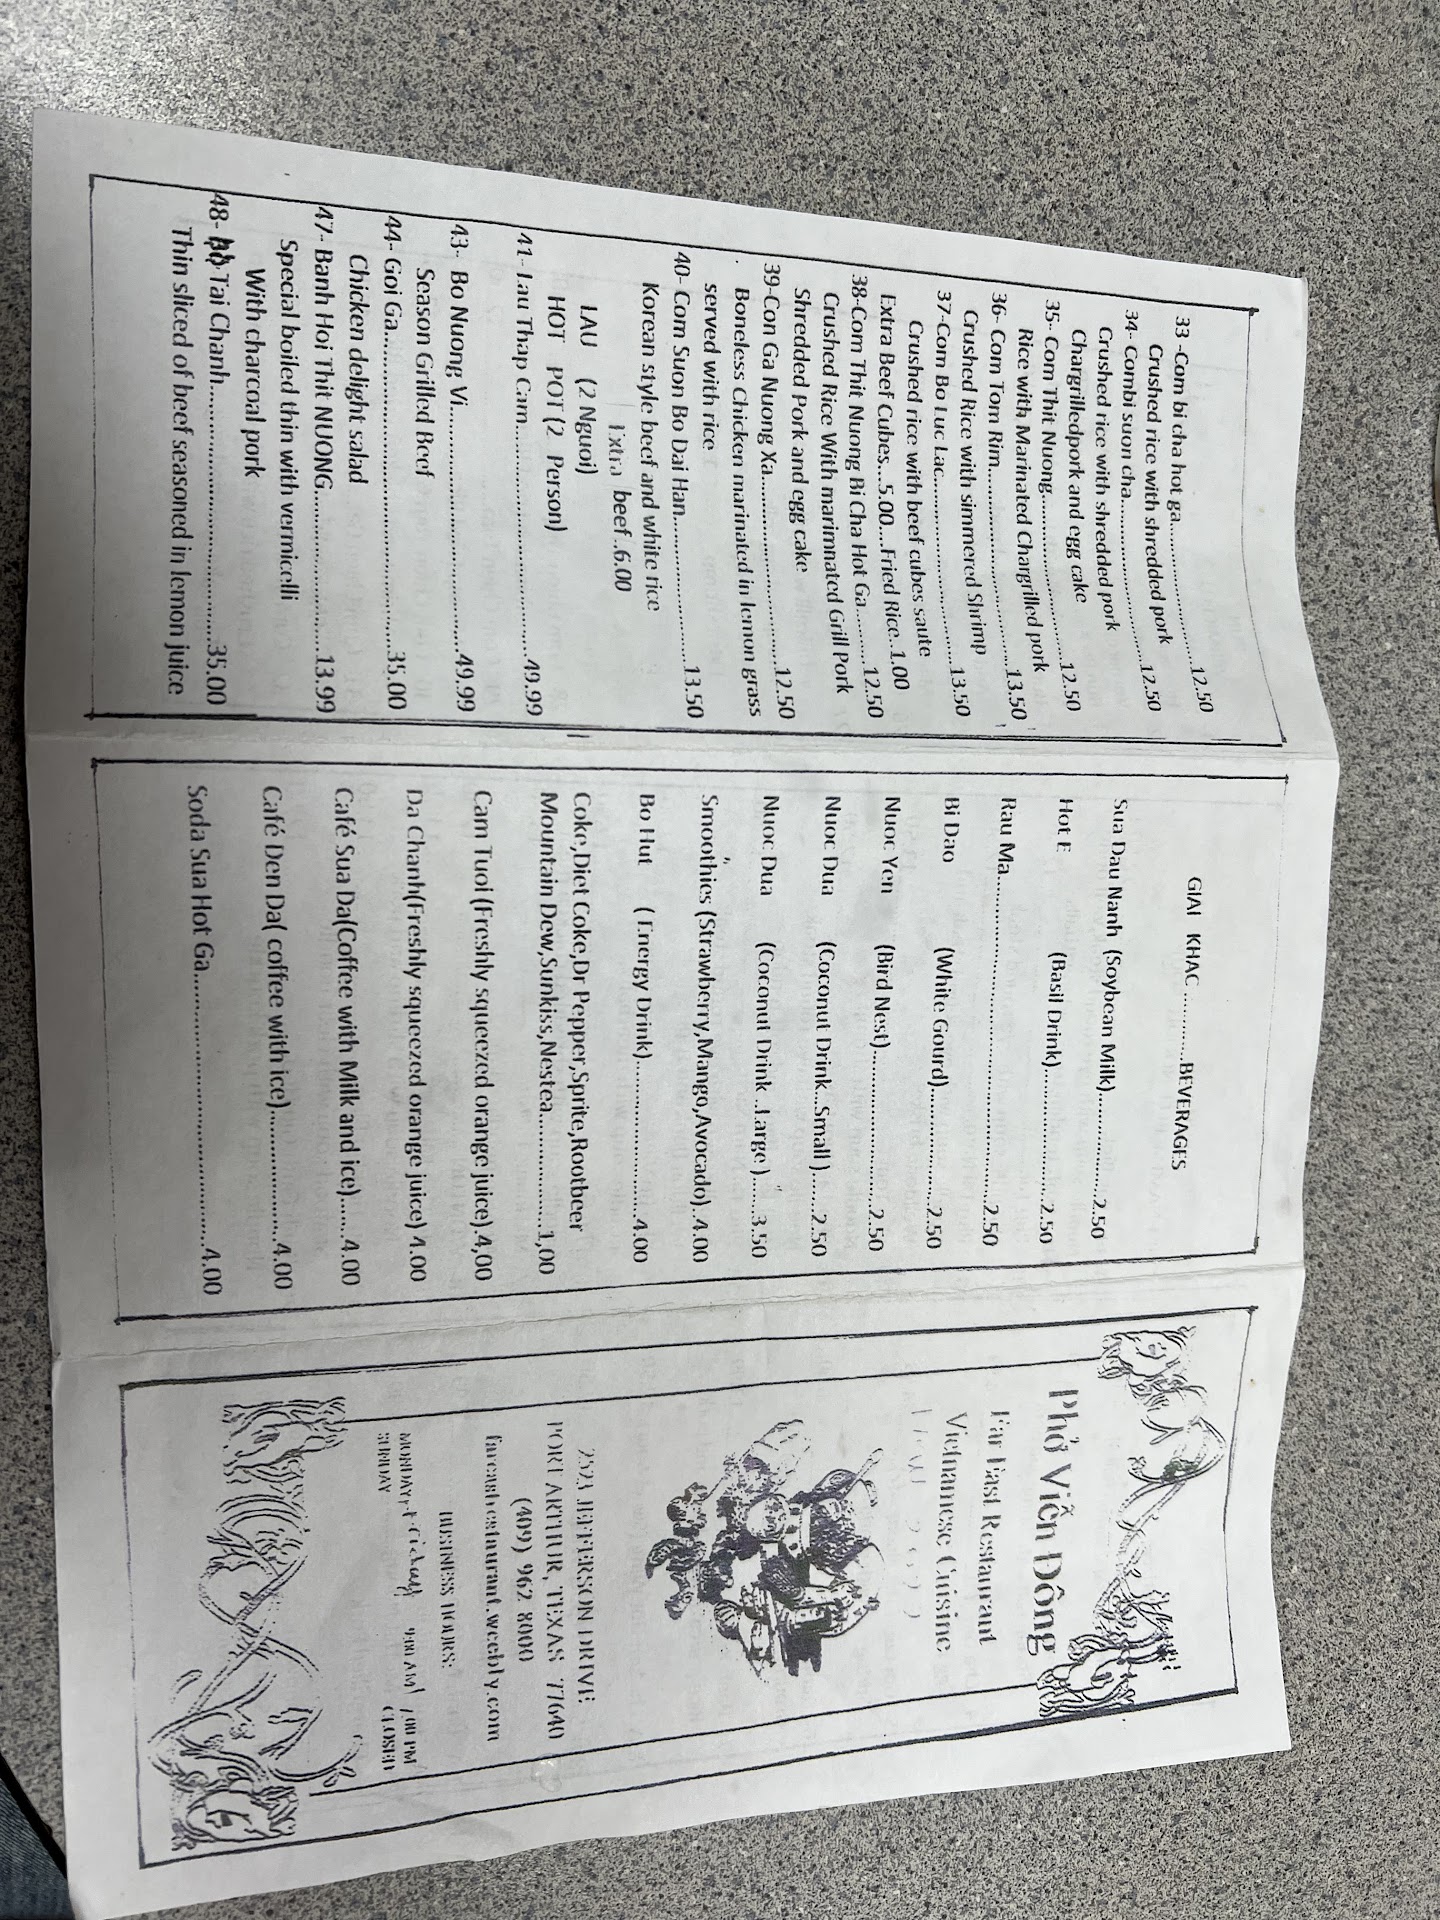 33 -Com bi cha hot ga..........................12.50
Crushed rice with shredded pork
34- Combi suon cha..........................12.50
Crushed rice with shredded pork
Chargrilledpork and egg cake
35- Com Thit Nuong..........................12.50
Rice with Marinated Chargrilled pork
36- Com Tom Rim..........................13.50
Crushed Rice with simmered Shrimp
37-Com Bo Luc Lac..........................13.50
Crushed rice with beef cubes saute
Extra Beef Cubes...5.00....Fried Rice..1.00
38-Com Thit Nuong Bi Cha Hot Ga.........12.50
Crushed Rice With marimnated Grill Pork
Shredded Pork and egg cake
39-Con Ga Nuong Xa..........................12.50
Boneless Chicken marinated in lemon grass
served with rice
40- Com Suon Bo Dai Han....................13.50
Korean style beef and white rice
Extra beef ..6.00
LAU (2 Nguoi)
HOT POT (2 Person)
41- Lau Thap Cam..........................49.99
43- Bo Nuong Vi..........................49.99
Season Grilled Beef
44- Goi Ga..........................35.00
Chicken delight salad
47- Banh Hoi Thit NUONG....................13.99
Special boiled thin with vermicelli
With charcoal pork
48- Tai Chanh..........................35.00
Thin sliced of beef seasoned in lemon juice
GIAI KHAC ............BEVERAGES
Sua Dau Nanh (Soybean Milk)................2.50
Hot E (Basil Drink)..................2.50
Rau Ma..........................2.50
Bi Dao (White Gourd)................2.50
Nuoc Yen (Bird Nest)....................2.50
Nuoc Dua (Coconut Drink...Small )......2.50
Nuoc Dua (Coconut Drink ..Large )......3.50
Smoothies (Strawberry,Mango,Avocado)..4.00
Bo Hut ( Energy Drink)....................4.00
Coke,Diet Coke,Dr Pepper,Sprite,Rootbeer
Mountain Dew,Sunkiss,Nestea...............1,00
Cam Tuoi (Freshly squeezed orange juice).4,00
Da Chanh(Freshly squeezed orange juice) 4.00
Café Sua Da(Coffee with Milk and ice)......4.00
Café Den Da( coffee with ice)................4.00
Soda Sua Hot Ga..........................4.00
Phở Viễn Đông
Far East Restaurant
Vietnamese Cuisine
2523 JEFFERSON DRIVE
PORT ARTHUR, TEXAS 77640
(409) 962 8000
fareastrestaurant.weebly.com
BUSINESS HOURS:
MONDAY - Friday 9:00 AM 7:00 PM
SUNDAY CLOSED